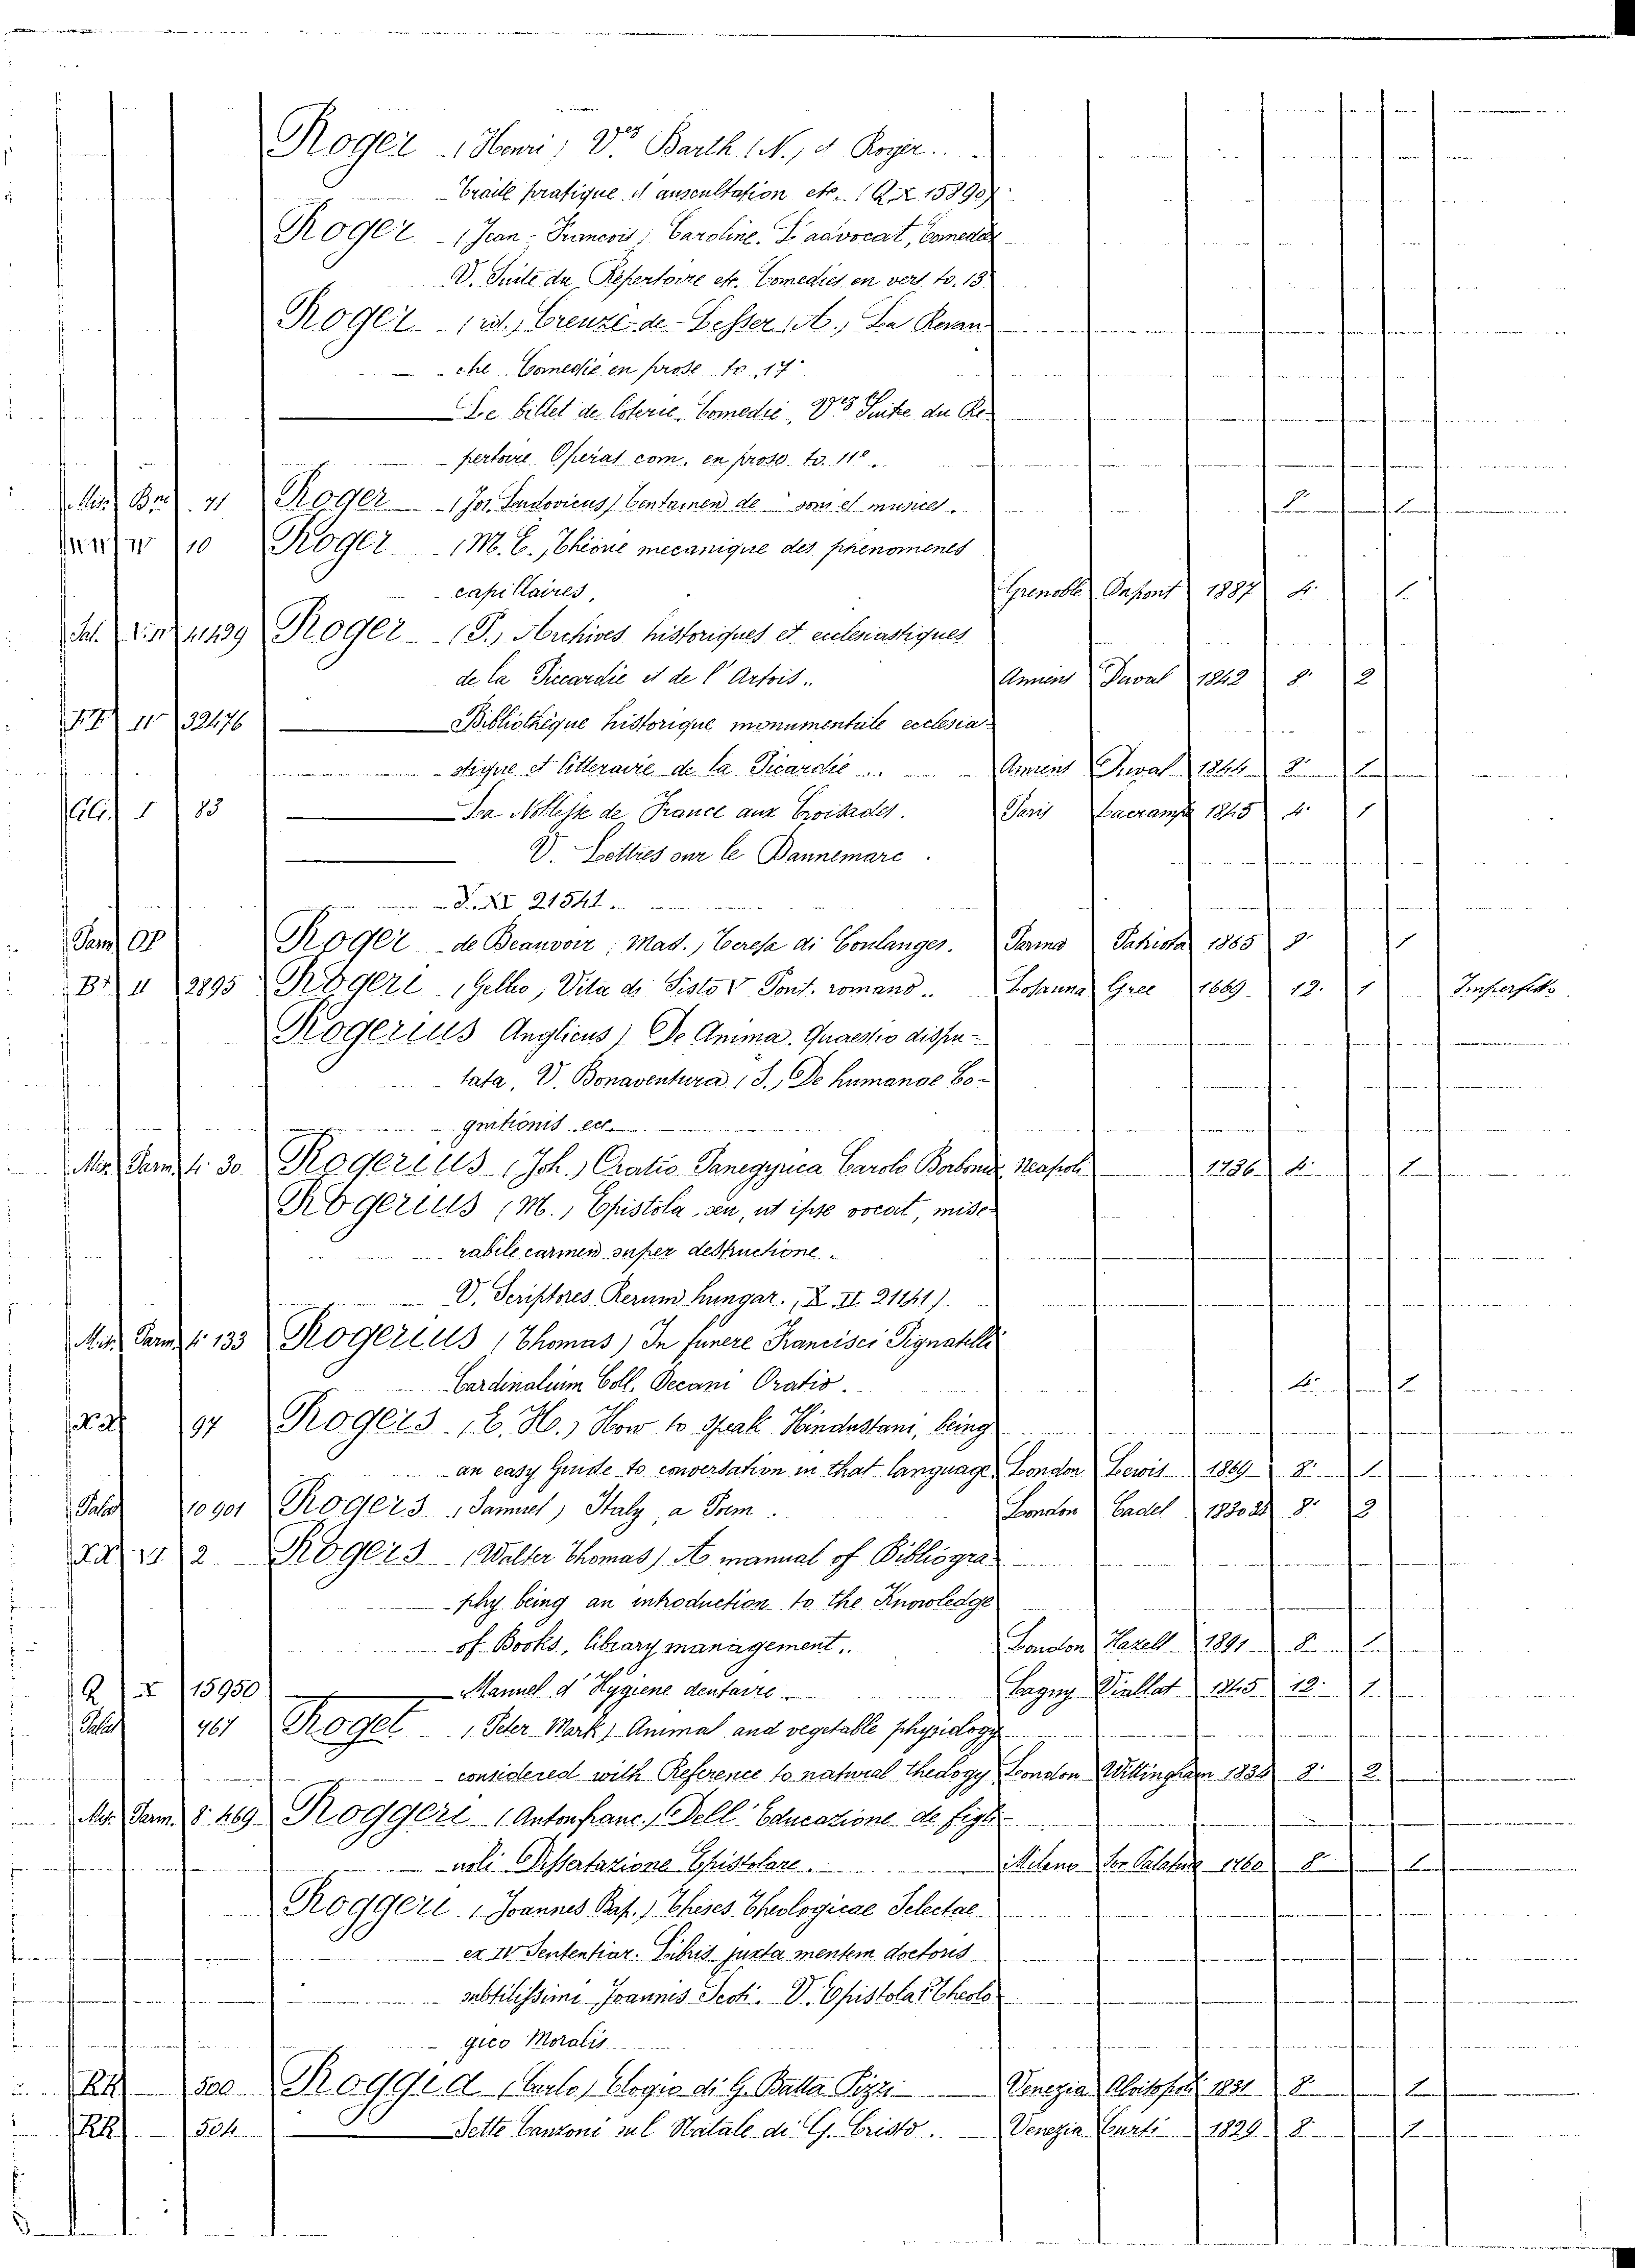 Roger (Henri) V.es Barth (N.) et Roger.
Traité pratique d'auscultation etc. (Q X 15890)
Roger (Jean-Francois) Caroline. L'advocat, Comedie
V. Suite du Repertoire etc. Comedies en vers to. 13.
Roger (id.) Creuzé-de-Lesser (A.) La Revan-
che Comedie en prose to 17
Le billet de Loterie, Comedie, V.es Suite du Re-
pertoire Operas com. en prose. to. 11º.
71 Roger (Jos. Ludovicus) Tentamen de et musices. 8 1
10 Roger (M. E.) Théorie mecanique des phenomenes
capillaires, Grenoble Dupont 1887 4. 1
Sal. 41439 Roger (P.) Archives historiques et eclesiastiques
de la Piccardie et de l'Artois. Amiens Duval 1842 8. 2
32476 Bibliothèque historique monumentale ecclesia-
stique et litteraire de la Picardie Amiens Duval 1844 8. 1
1 83 La Noblesse de France aux Croisades. Paris Lacrampe 1845 4. 1
V. Lettres sur le Dannemarc.
21541.
Roger de Beauvoir, Mad., Teresa di Coulanges. Parma 1865 8. 1
2895 Rogeri (Gelho), Vita di Sisto V Pont. romano. 1669 12. 1 Imperfetto
Rogerius Anglicus) De Anima. Quaestio dispu-
tata, V. Bonaventura (S.) De humanae Co-
gnitionis ecc.
Mis. Parm. 4: 30. Rogerius (Joh.) Oratio Panegyrica Carolo Borbonio Neapoli 1736 4. 1
Rogerius (M.) Epistola, seu, ut ipse vocat, mise-
rabile carmen super destructione.
V. Scriptores Rerum hungar., (X. II 21141).
Mis. Parm. 4: 133 Rogerius (Thomas) In funere Francisci Pignatelli
Cardinalium Coll. Decani Oratio. 4. 1
97 Rogers (E. H.) How to speak Hindustani, being
an easy Guide to conversation in that language London Lewis 1869 8. 1
Palat 10901 Rogers (Samuel) Italy a Poem. London Cadel 1830 8. 2
2 Rogers (Walter Thomas) A manual of Bibliogra-
phy being an introduction to the Knowledge
of Books, library management. London Hazell 1891 8. 1
Q X 15950 Manuel d'Hygiene dentaire Lagny Viallat 1845 12. 1
Palat 467 Roget (Peter Mark) Animal and vegetable physiology
considered with Reference to natural theology London Wittingham 1834 8. 2
Mis. Parm. 8: 469 Roggeri (Antonfranc.) Dell'Educazione de figli-
uoli Dissertazione Epistolare. Milano 1760 8 1
Roggeri (Joannes Bap.) Theses Theologicae Selectae
ex IV Sententiar. Libris juxta mentem doctoris
subtilissimi Joannis Scoti. V. Epistola Theolo-
gico Moralis
500 Roggia (Carlo) Elogio di G. Batta Pizzi Venezia Alvisopoli 1831 8. 1
504 Sette Canzoni sul Natale di G. Cristo. Venezia Curti 1829 8. 1